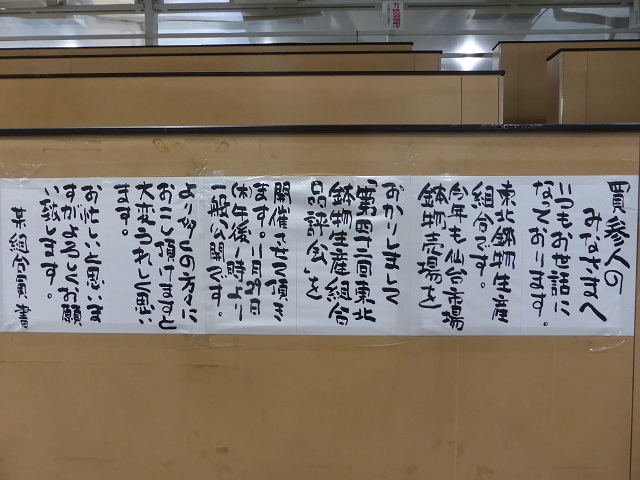 買参人の
みなさまへ
いつもお世話に
なっております。
東北鉢物生産
組合です。
今年も仙台市場
鉢物売場を
おかりしまして
「第四十二回東北
鉢物生産組合
品評会」を
開催させて頂き
ます。11月29日
(木)午後1時より
一般公開です。
より多くの方々に
おこし頂けますと
大変うれしく思い
ます。
お忙しいと思いま
すがよろしくお願
い致します。
某組合員 書